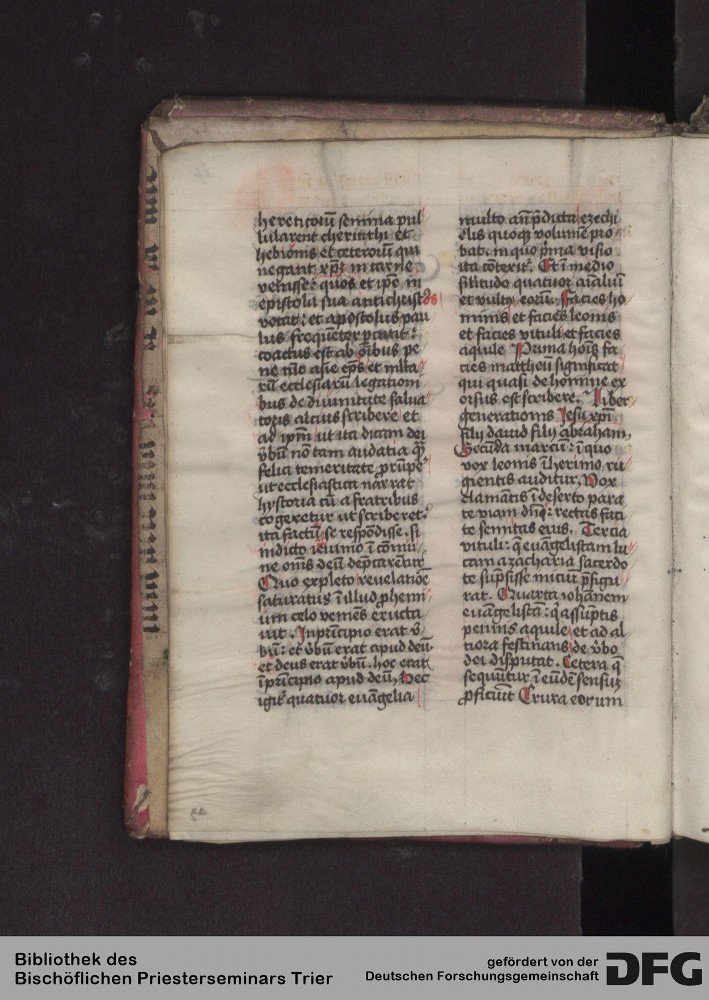 hereticoru᷑ semina pul
lularent cherinthi et
hebionis et ceteroru᷑ qui
negant xp̅m in carne
venisse: quos et ip̅e in
epistola sua antichristos
vocat: et apostolus pau
lus freque̅ter p̲cutit:
coactus est ab o̅ibus pe
ne tu̅c asie ep̅is et m̅lta
ru̅ ecclesiaru̅ legation
bus de diuinitate salua
toris alcius scribere et
ad ip̅m ut ita dicam dei
v̅bu̅ no̅ tam audatia q̅
felici temeritate p̲ru̅pe
ut ecclesiastica narrat
hystoria cu̅ a fratribus
cogeretur ut scriberet:
ita factu̅ se respo̅disse. si
indicto ieiunio i̅ co̅mu
ne om̅s deu̅ dep̅carent̅
Quo expleto reuelatio̅e
saturatus i̅ illud p̲hemi
um celo venie̅s eructa
uit. Inpri̅cipio erat v̅
bu̅: et v̅bu̅ erat apud deu̅
et deus erat v̅bu̅. hoc erat
i̅ pri̅cipio apud deu̅, Hec
igit̅ quatuor eua̅gelia
multo an̅ p̅dicta ezechi
elis quoq̨ volume̅ pro
bat. in quo p̅ma visio
ita co̅texit̅. Et i̅ medio
silitudo quatuor a̅i̅aliu̅
et vult̨ eoru̅. Facies ho
minis et facies leonis
et facies vituli et facies
aquile Prima ho̅is fa
cies matheu̅ significat
qui quasi de homine ex
orsus est scribere. Liber
generationis Jesu xp̅i
filij dauid filij abraham,
Secu̅da marcu̅: i̅ quo
vox leonis i̅ herimo ru
gientis auditur. Vox
clama̅tis i̅ deserto para
te viam dn̅i: rectas faci
te semitas eius. Tercia
vituli: q̅ eua̅gelistam lu
cam a zacharia sacerdo
te su̅psisse iniciu̅ p̅figu
rat. Quarta ioha̅nem
eua̅gelista̅: q̅ assu̅ptis
pennis aquile et ad al
tiora festinans de v̅bo
dei disputat. Cetera q̅
sequu̅tur i̅ eu̅de̅ sensu̅
p̲ficiu̅t Crura eorum
Bibliothek des
Bischöflichen Priesterseminars Trier
gefördert von der
Deutschen Forschungsgemeinschaft
DFG